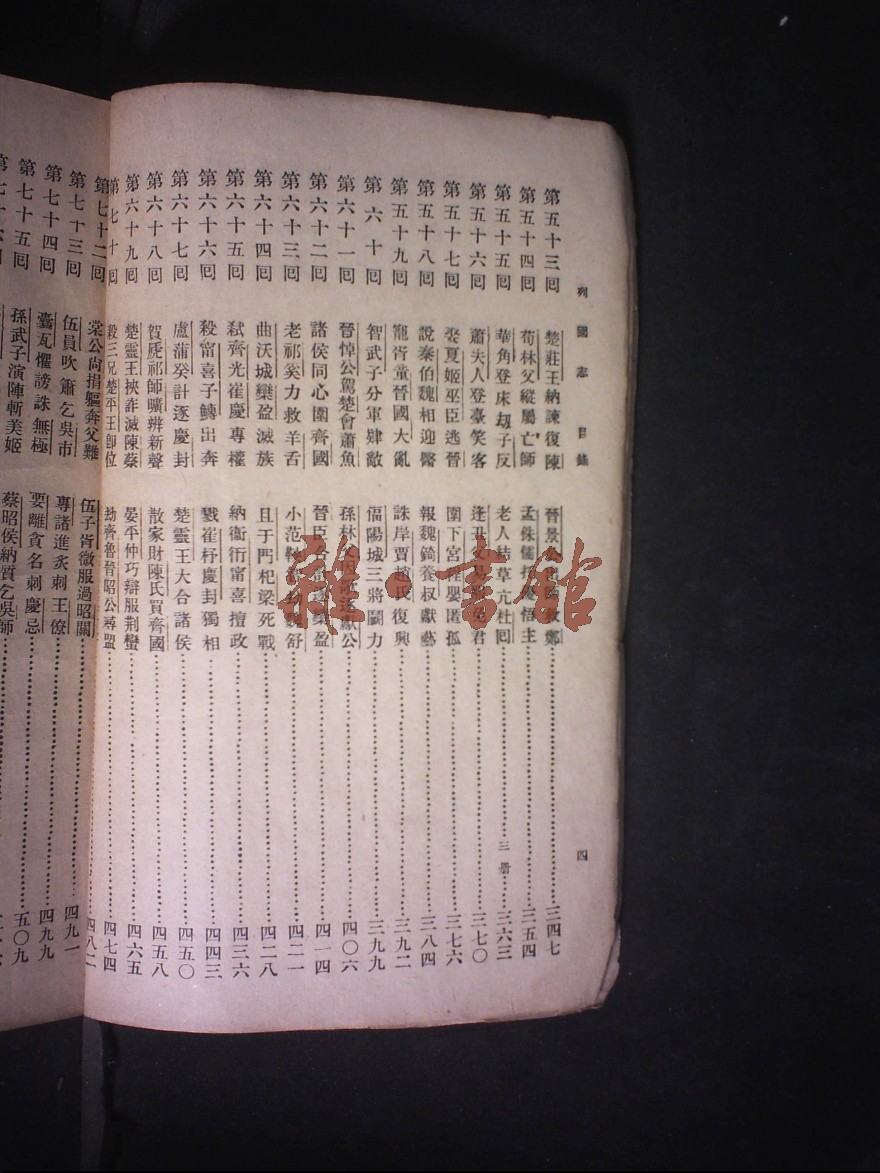 列國志 目錄 四
第五十三囘 楚莊王納諫復陳 晉景公出師救鄭 三四七
第五十四囘 荀林父縱屬亡師 孟侏儒托優悟主 三五四
第五十五囘 華角登床刧子反 老人結草亢杜囘 三册 三六三
第五十六囘 蕭夫人登臺笑客 逢丑父易服免君 三七〇
第五十七囘 娶夏姬巫臣逃晉 圍下宮程嬰匿孤 三七六
第五十八囘 說秦伯魏相迎醫 報魏錡養叔獻藝 三八四
第五十九囘 寵胥童晉國大亂 誅岸賈趙氏復興 三九二
第六十囘 智武子分軍肄敵 偪陽城三將鬭力 三九九
第六十一囘 晉悼公駕楚會蕭魚 孫林父因歌逐獻公 四〇六
第六十二囘 諸侯同心圍齊國 晉臣合計逐欒盈 四一四
第六十三囘 老祁奚力救羊舌 小范鞅 魏舒 四二一
第六十四囘 曲沃城欒盈滅族 且于門杞梁死戰 四二八
第六十五囘 弑齊光崔慶專權 納衞衎甯喜擅政 四三六
第六十六囘 殺甯喜子鱄出奔 戮崔杼慶封獨相 四四三
第六十七囘 盧蒲癸計逐慶封 楚靈王大合諸侯 四五〇
第六十八囘 賀虒祁師曠辨新聲 散家財陳氏買齊國 四五八
第六十九囘 楚靈王挾詐滅陳蔡 晏平仲巧辯服荆蠻 四六五
第七十囘 殺三兄楚平王卽位 劫齊魯晉昭公尋盟 四七四
第七十二囘 棠公尚捐軀奔父難 伍子胥微服過昭關 四八二
第七十三囘 伍員吹簫乞吳市 專諸進炙刺王僚 四九一
第七十四囘 囊瓦懼謗誅無極 要離貪名刺慶忌 四九九
第七十五囘 孫武子演陣斬美姬 蔡昭侯納質乞吳師 五〇九
雜·書館